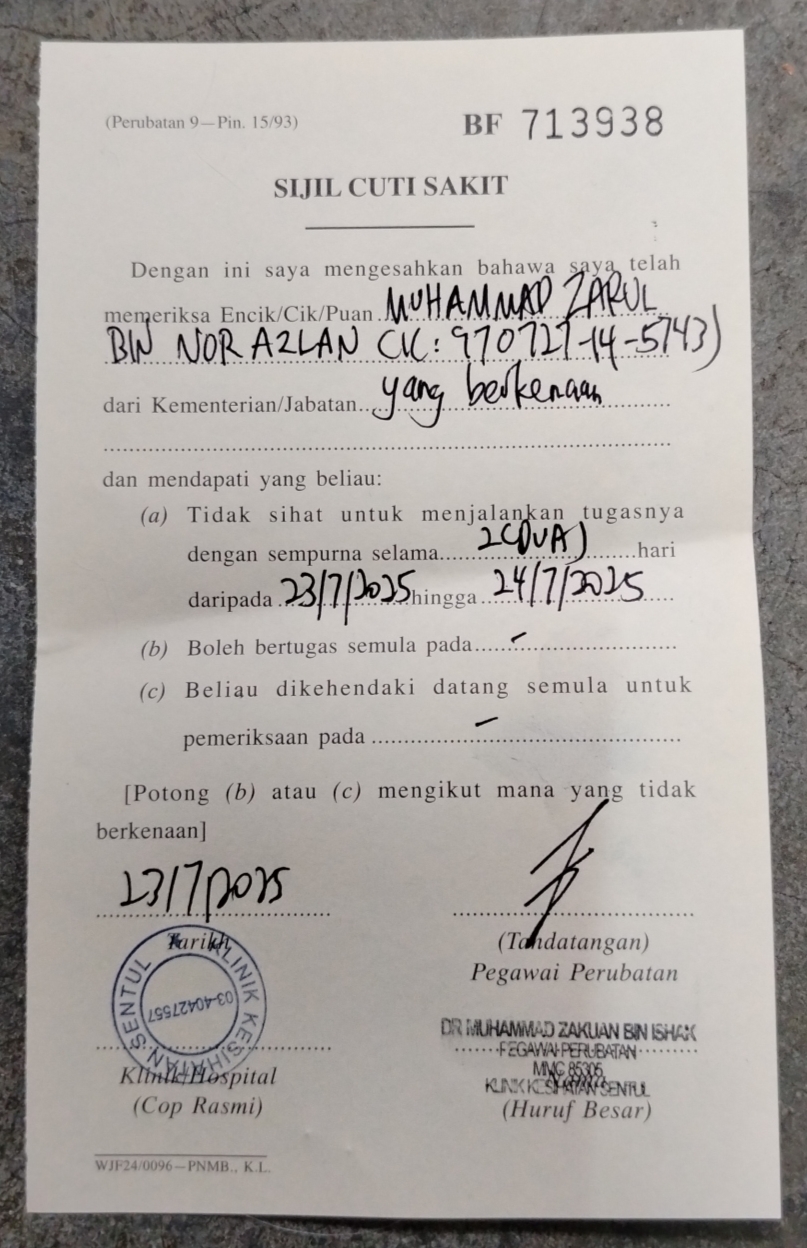 (Perubatan 9—Pin. 15/93)
BF 713938
SIJIL CUTI SAKIT
Dengan ini saya mengesahkan bahawa saya telah
memeriksa Encik/Cik/Puan MUHAMMAD ZARUL
BIN NOR AZLAN (IC: 970727-14-5743)
dari Kementerian/Jabatan yang berkenaan
dan mendapati yang beliau:
(a) Tidak sihat untuk menjalankan tugasnya
dengan sempurna selama 2(DUA) hari
daripada 23/7/2025 hingga 24/7/2025
(b) Boleh bertugas semula pada -
(c) Beliau dikehendaki datang semula untuk
pemeriksaan pada -
[Potong (b) atau (c) mengikut mana yang tidak
berkenaan]
23/7/2025
Tarikh
(Tandatangan)
Pegawai Perubatan
KLINIK KESIHATAN SENTUL
03-40427557
Klinik/Hospital
(Cop Rasmi)
DR MUHAMMAD ZAKUAN BIN ISHAK
PEGAWAI PERUBATAN
MMC 85305
KLINIK KESIHATAN SENTUL
(Huruf Besar)
WJF24/0096—PNMB., K.L.